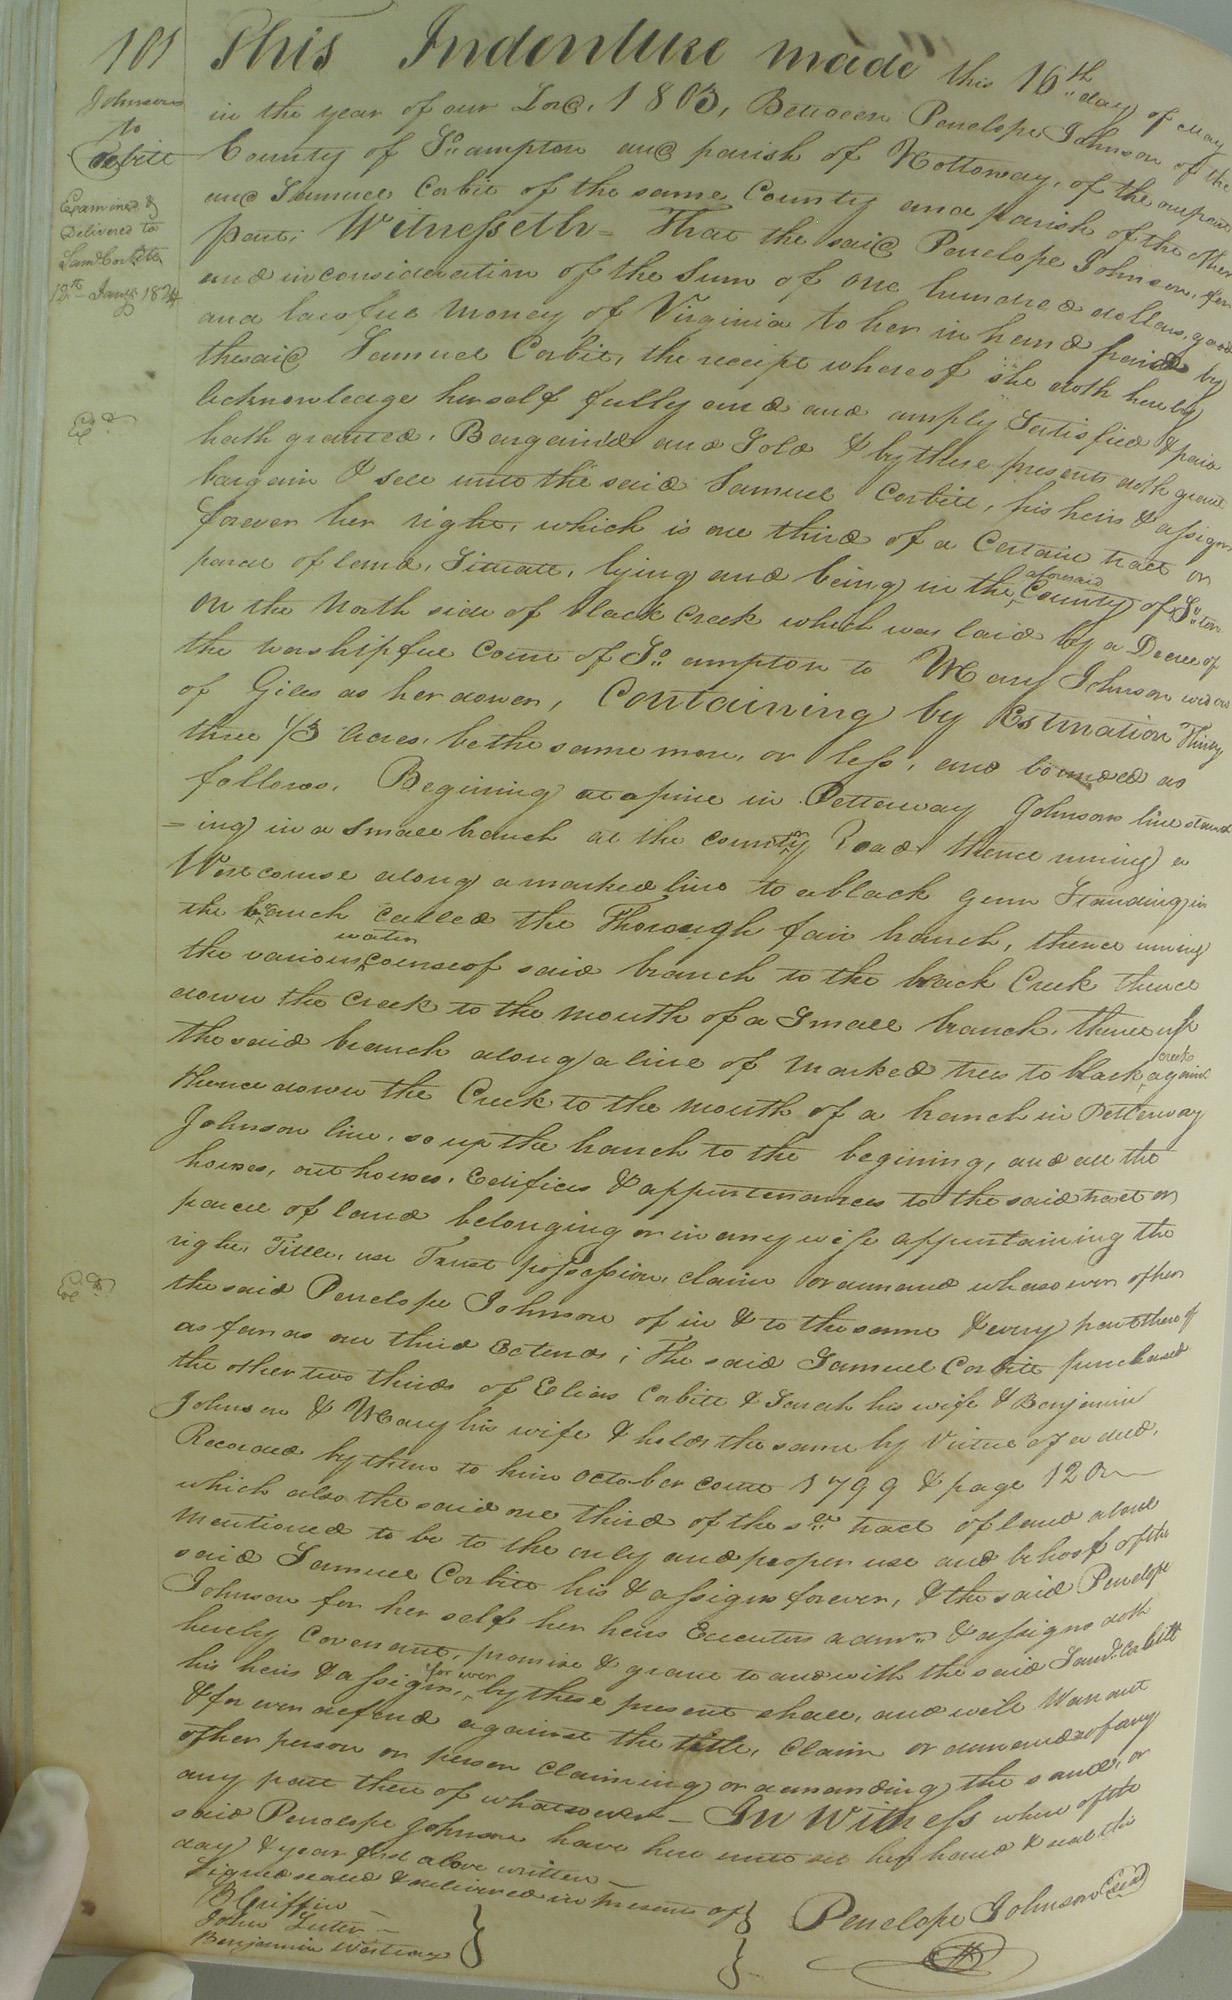 101
Johnson
to
Corbitt
Examined &
Delivered to
Saml Corbitt
12th Jany 1824
This Indenture made this 16th day of May
in the year of our Lord, 1803, Between Penelope Johnson of the
County of So ampton and parish of Nottoway, of the one part
and Samuel Corbit of the same County and parish of the other
part; Witnesseth = That the said Penelope Johnson, for
and in consideration of the Sum of one hundred dollars, good
and lawful Money of Virginia to her in hand paid by
the said Samuel Corbit, the receipt whereof she doth hereby
acknowledge herself fully and and amply Satisfied & paid
hath granted, Bargain'd and Sold & by these presents doth grant
bargain & sell unto the said Samuel Corbitt, his heirs & assigns
forever her right, which is one third of a Certain tract or
parcel of land, Situate, lying and being in the aforesaid County of So ton
on the North side of black Creek which was laid by a Decree of
the worshipful Court of So ampton to Mary Johnson widow
of Giles as her dower, Containing by Estmation Thirty
three 1/3 Acres, be the same more, or less, and bounded as
follows. Begining at a pine in Pettaway Johnsons line stand
=ing in a small branch at the county Road thence runing a
West course along a marked line to a black gum Standing in
the branch called the Thorough fair branch, thence runing
the various water course of said branch to the black Creek thence
down the Creek to the mouth of a Small branch, thence up
the said branch along a line of marked trees to black creek again
thence down the Creek to the mouth of a branch in Petterway
Johnson line, so up the branch to the begining, and all the
houses, out houses, Edifices & appurtenances to the said tract or
parcel of land belonging or in any wise appurtaining the
right, Title, use Trust possession, claim or demand whasoever of her
the said Penelope Johnson of in & to the same & every part there of
as far as one third Extends; The said Samuel Corbitt purchased
the other two thirds of Elias Corbitt & Sarah his wife & Benjamin
Johnson & Mary his wife & holds the same by Virtue of a deed,
Recorded by them to him October Court 1799 & page 120
which also the said one third of the sd tract of land above
mentioned to be to the only and proper use and behoof of the
said Samuel Corbitt his & assigns forever, & the said Penelope
Johnson for her self her heirs Executors admrs & assigns doth
hereby Covenant, promise & grant to and with the said Saml Corbitt
his heirs & assigns, for ever by these present shall, and will Warrant
& for ever defend against the title, Claim or demands of any
other person or person Claiming or demanding the same, or
any part there of whatsoever - In Witness where of the
said Penelope Johnson have here unto set her hand & seal the
day & year first above written -
Signed sealed & delivered in presence of
B Griffin
John Luter
Benjamin Westray
Penelope Johnson Seal